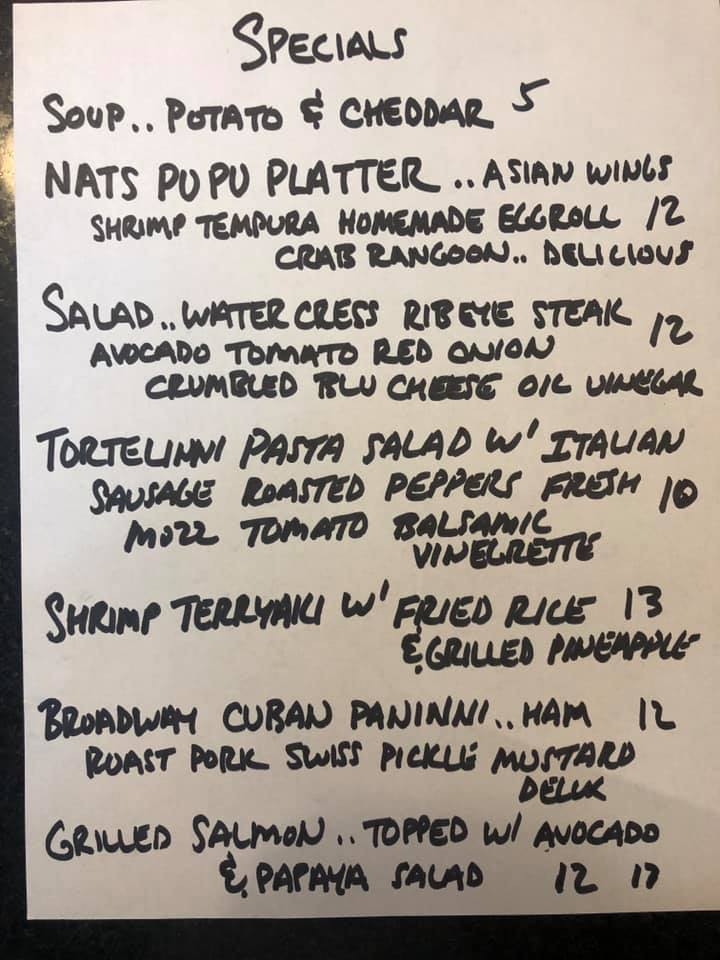 SPECIALS
SOUP.. POTATO & CHEDDAR 5
NATS PU PU PLATTER .. ASIAN WINGS
SHRIMP TEMPURA HOMEMADE EGGROLL 12
CRAB RANGOON.. DELICIOUS
SALAD.. WATERCRESS RIBEYE STEAK 12
AVOCADO TOMATO RED ONION
CRUMBLED BLU CHEESE OIL VINEGAR
TORTELINNI PASTA SALAD W' ITALIAN
SAUSAGE ROASTED PEPPERS FRESH 10
MOZZ TOMATO BALSAMIC
VINEGRETTE
SHRIMP TERRYAKI W' FRIED RICE 13
& GRILLED PINEAPPLE
BROADWAY CUBAN PANINNI.. HAM 12
ROAST PORK SWISS PICKLE MUSTARD
DELUX
GRILLED SALMON.. TOPPED W/ AVOCADO
& PAPAYA SALAD 12 17